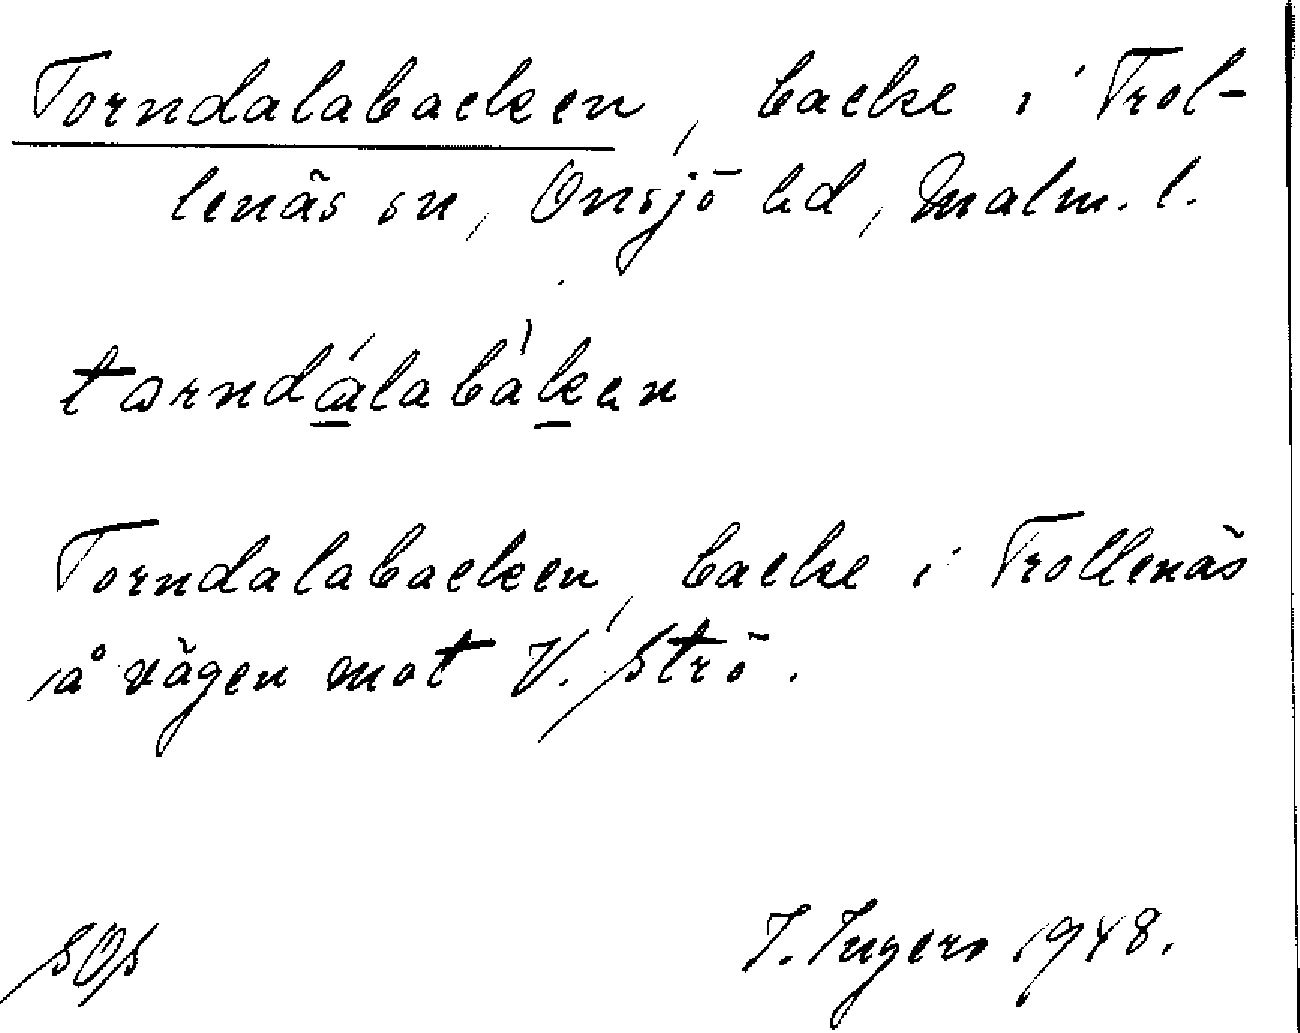 Torndalabacken, backe i Trol-
lenäs sn, Onsjö hd, Malm. l.
tarndálabàken
Torndalabacken, backe i Trollenäs
å vägen mot V. Strö.
SOS I. Ingers 1948.